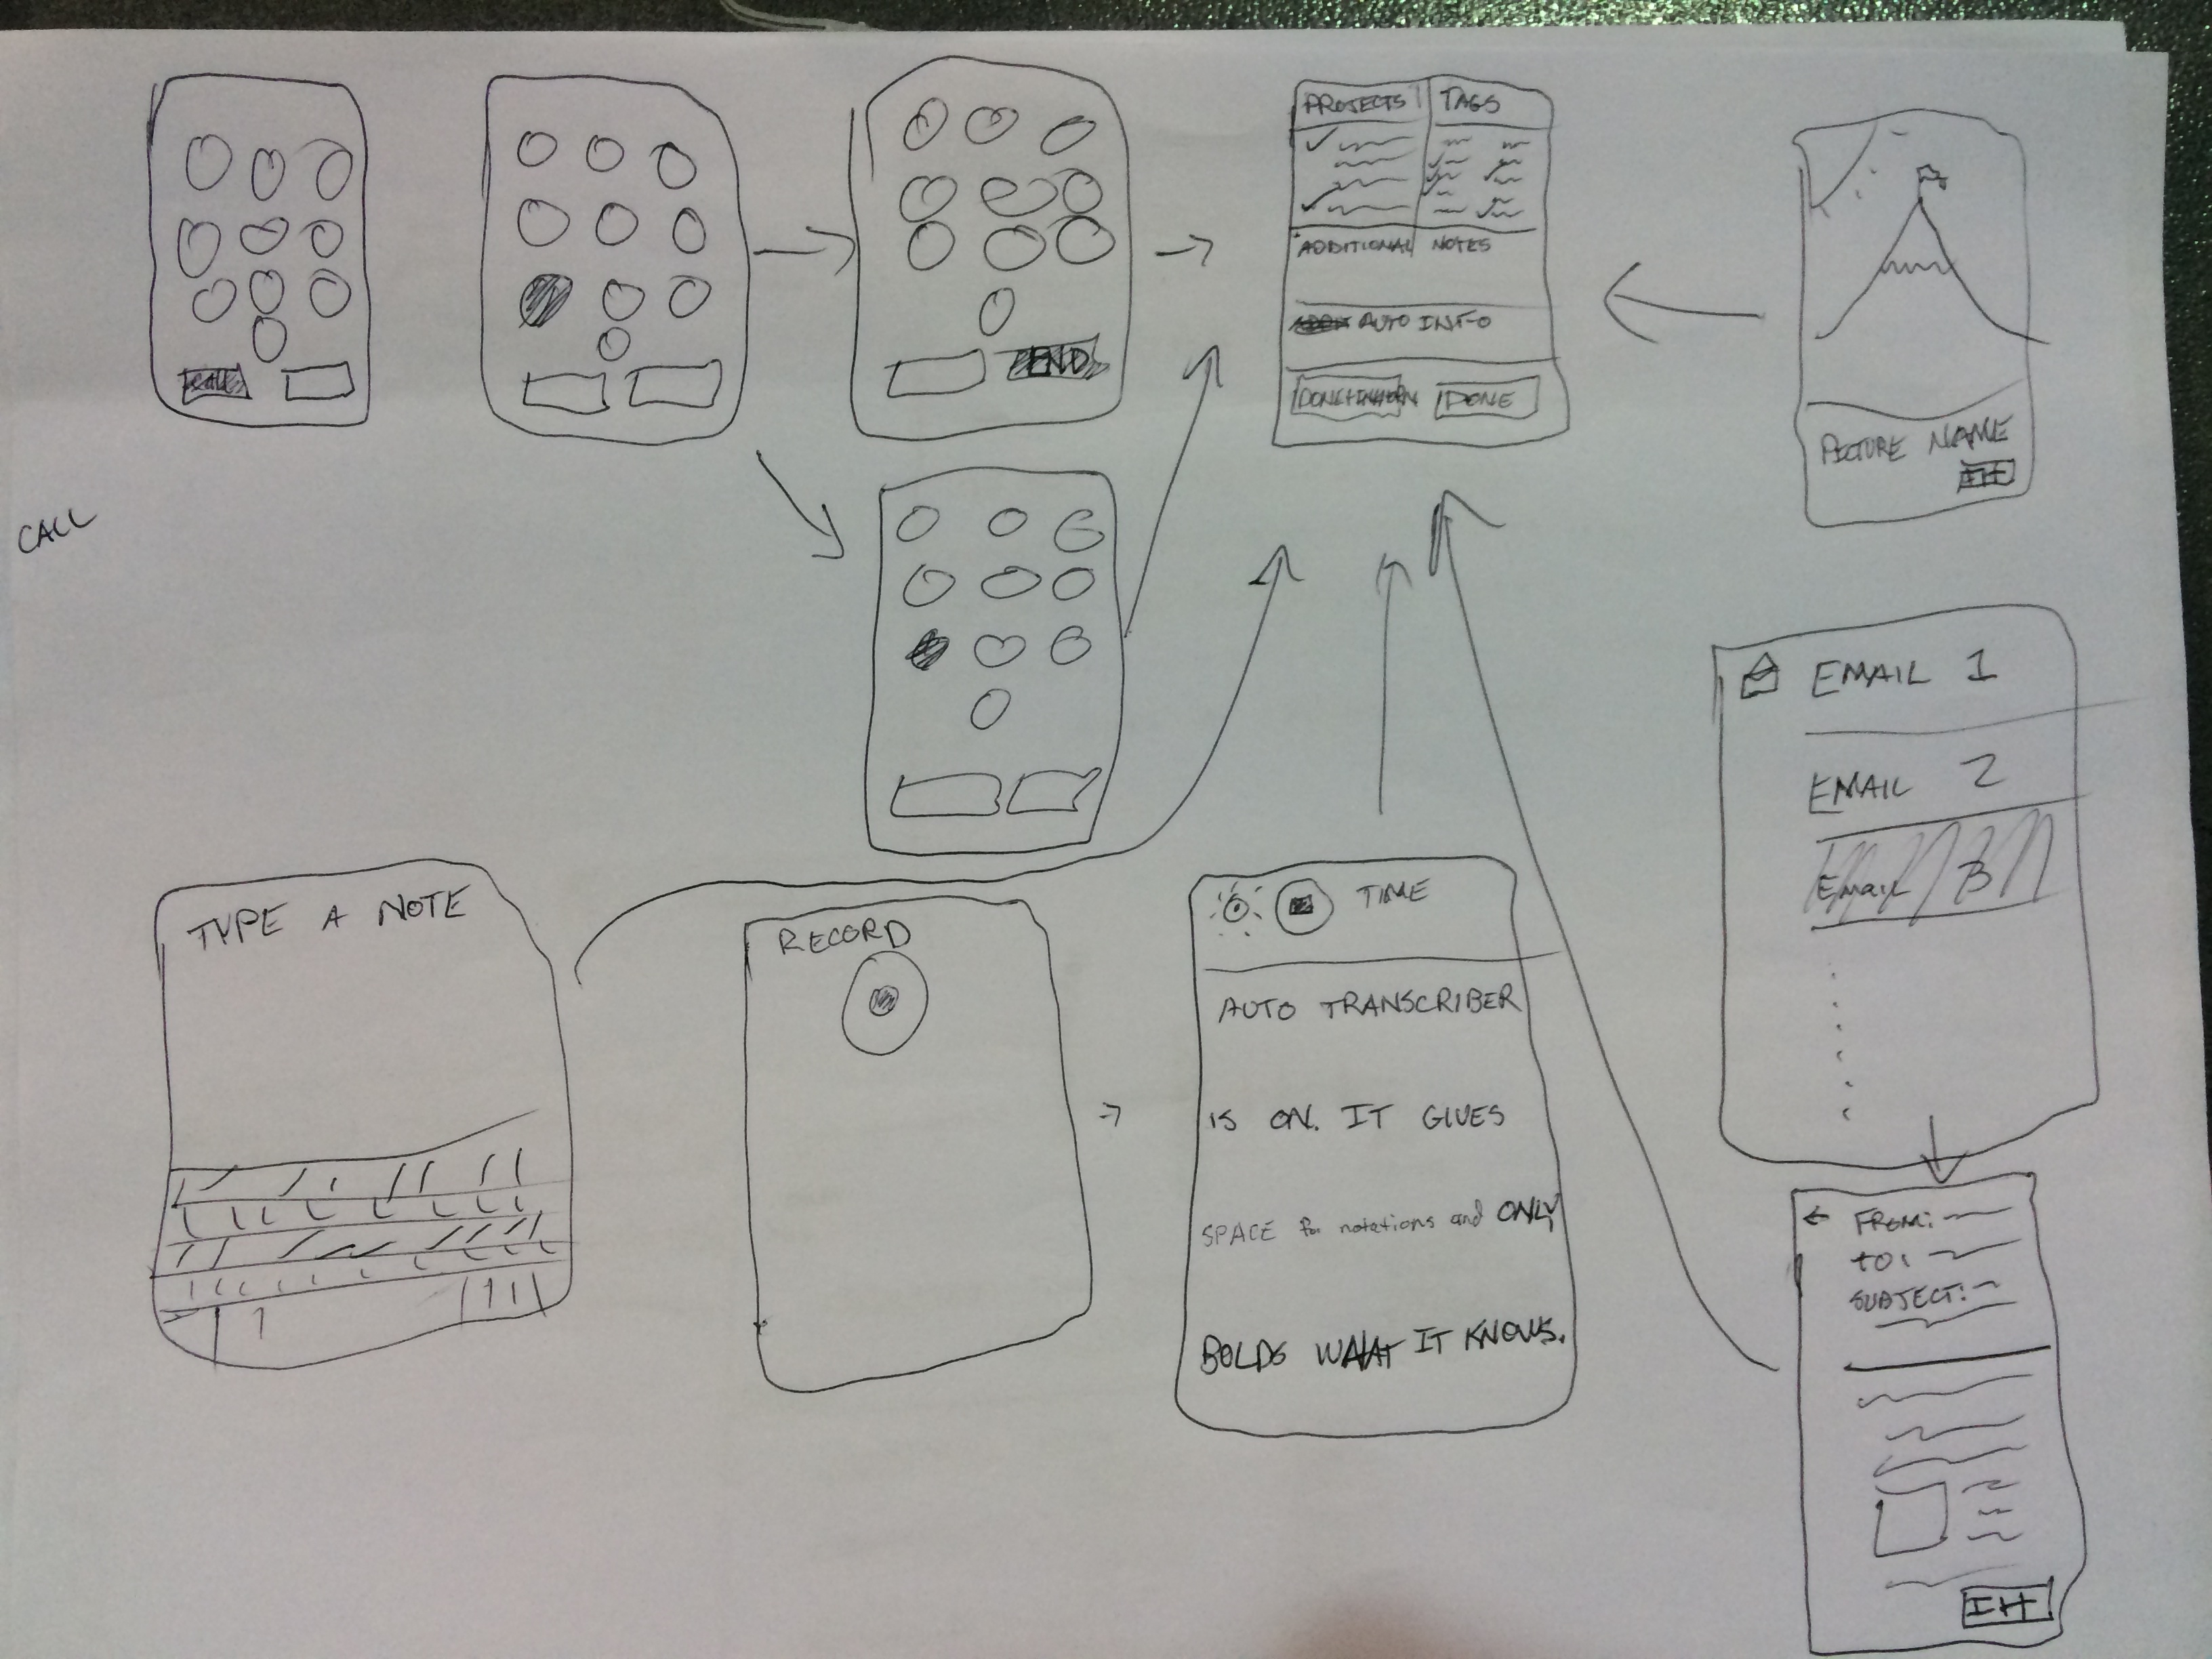 CALL
CALL
END
PROJECTS TAGS
ADDITIONAL NOTES
AUTO INFO
DONE
PICTURE NAME
IH
EMAIL 1
EMAIL 2
Email 3
FROM:
to:
SUBJECT:
IH
TYPE A NOTE
RECORD
TIME
AUTO TRANSCRIBER
IS ON. IT GIVES
SPACE for notations and ONLY
BOLDS WHAT IT KNOWS.